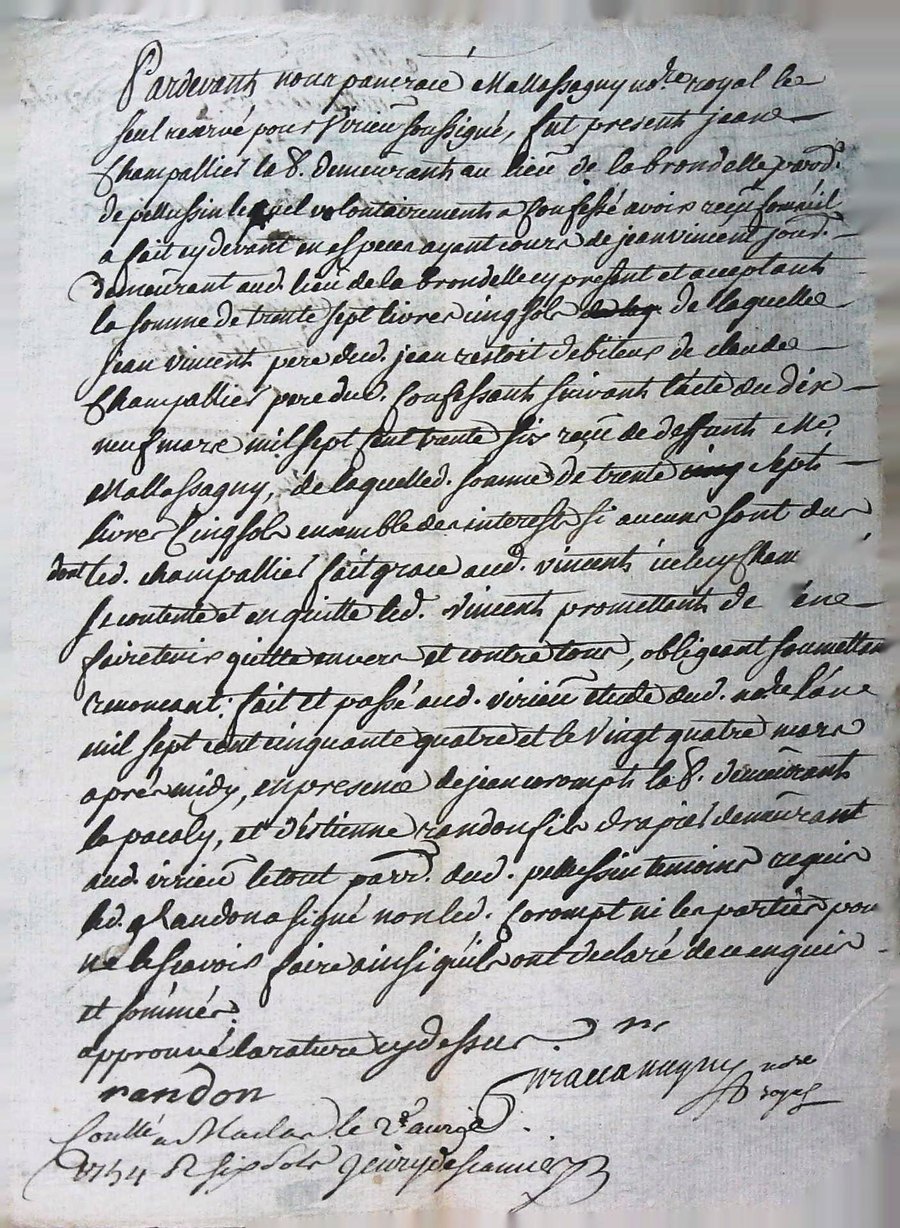 Pardevant nous pancrace Mallassagny no.re royal le
seul reservé pour Virieu soussigné, fut present jean
Champallier lab.r demeurant au lieu de la brondelle parod.
de pellussin lequel volontairement a confessé avoir reçu
a fait cy devant en especes ayant cours de jean vincent jourd.
demeurant aud. lieu de la brondelle cy present et acceptant
la somme de trente sept livres cinq sols de laquelle
jean vincent pere dud. jean restoit debiteur de claude
Champallier pere dud. Confessant suivant l'acte du dix
neuf mars mil sept cent trente six reçu de deffunt Me.
Mallassagny, de laquelle d. somme de trente cinq sept
livres cinq sols ensemble des interests si aucuns sont dus
dont led. champallier fait grace aud. vincent iceluy Cham
se contente et en quitte led. Vincent promettant de
faire tenir quitte envers et contre tous, obligeant soumettan
renoncant: fait et passé aud. virieu etude dud. no.re l'ane
mil sept cent cinquante quatre et le vingt quatre mars
aprés midy, en presence de jean corompt lab.r demeurant
la pacaly, et d'estienne randon fils drapier demeurant
aud. virieu le tout parr. dud. pellussin temoins requis
led. randon a signé non led. Corompt ni les parties pour
ne le scavoir faire ainsi qu'ils ont declaré de ce enquis
et sommés.
approuvé la rature cy dessus.
randon
Mallassagny no.re
royal
Conllé a Maclas le 2.e avril
1754 R six sols